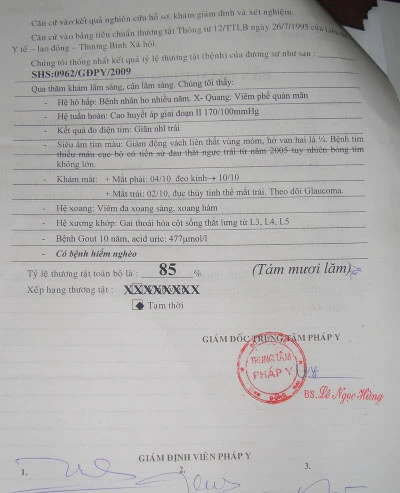 Căn cứ vào kết quả nghiên cứu hồ sơ, khám giám định và xét nghiệm.
Căn cứ vào bảng tiêu chuẩn thương tật Thông tư 12/TTLB ngày 26/7/1995 của Liên
Y tế – lao động – Thương Binh Xã hội.
Chúng tôi thống nhất kết quả tỷ lệ thương tật (bệnh) của đương sự như sau :
SHS:0962/GĐPY/2009
Qua thăm khám lâm sàng, cận lâm sàng. Chúng tôi thấy:
- Hệ hô hấp: Bệnh nhân ho nhiều năm. X- Quang: Viêm phế quản mãn
- Hệ tuần hoàn: Cao huyết áp giai đoạn II 170/100mmHg
- Kết quả đo điện tim: Giãn nhĩ trái
- Siêu âm tim màu: Giảm động vách liên thất vùng mỏm, hở van hai lá ¼. Bệnh tim
thiếu máu cục bộ có tiền sử đau thắt ngực trái từ năm 2005 tuy nhiên bóng tim
không lớn.
- Khám mắt: + Mắt phải: 04/10 đeo kính→ 10/10
+ Mắt trái: 02/10, đục thủy tinh thể mắt trái. Theo dõi Glaucoma.
- Hệ xoang: Viêm đa xoang sàng, xoang hàm
- Hệ xương khớp: Gai thoái hóa cột sống thắt lưng từ L3, L4, L5
- Bệnh Gout 10 năm, acid uric: 477µmol/l
- Có bệnh hiểm nghèo
Tỷ lệ thương tật toàn bộ là : 85 % (Tám mươi lăm)
Xếp hạng thương tật : XXXXXXXX
Tạm thời
GIÁM ĐỐC TRUNG TÂM PHÁP Y
TRUNG TÂM
PHÁP Y
BS. Lê Ngọc Hùng
GIÁM ĐỊNH VIÊN PHÁP Y
1. 2. 3.